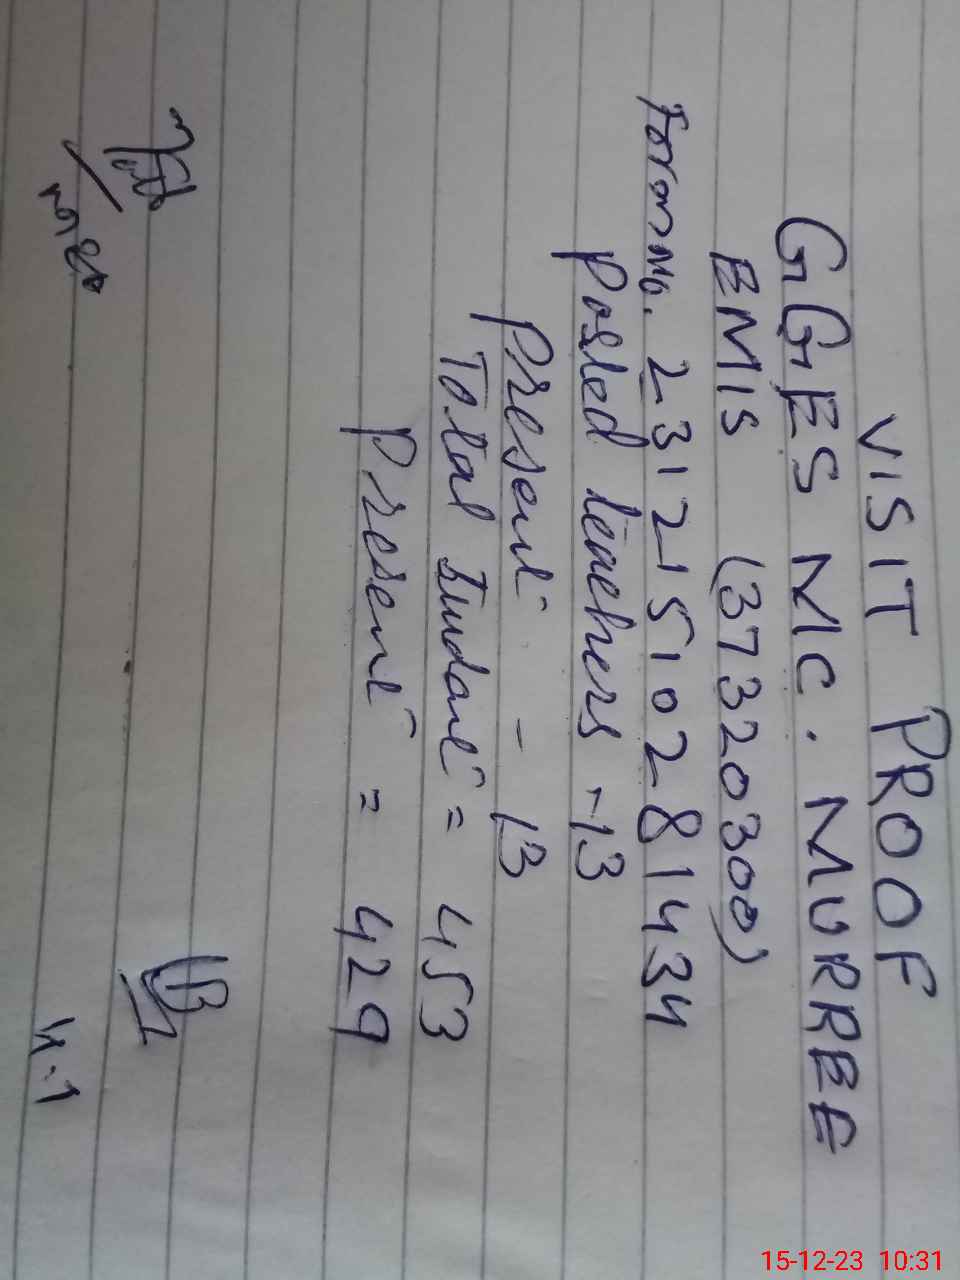 VISIT PROOF
GGES MC. MURREE
EMIS (37320300)
Form No. 23121510281434
Posted teachers - 13
Present - 13
Total Student = 453
Present = 429
H.T
15-12-23 10:31